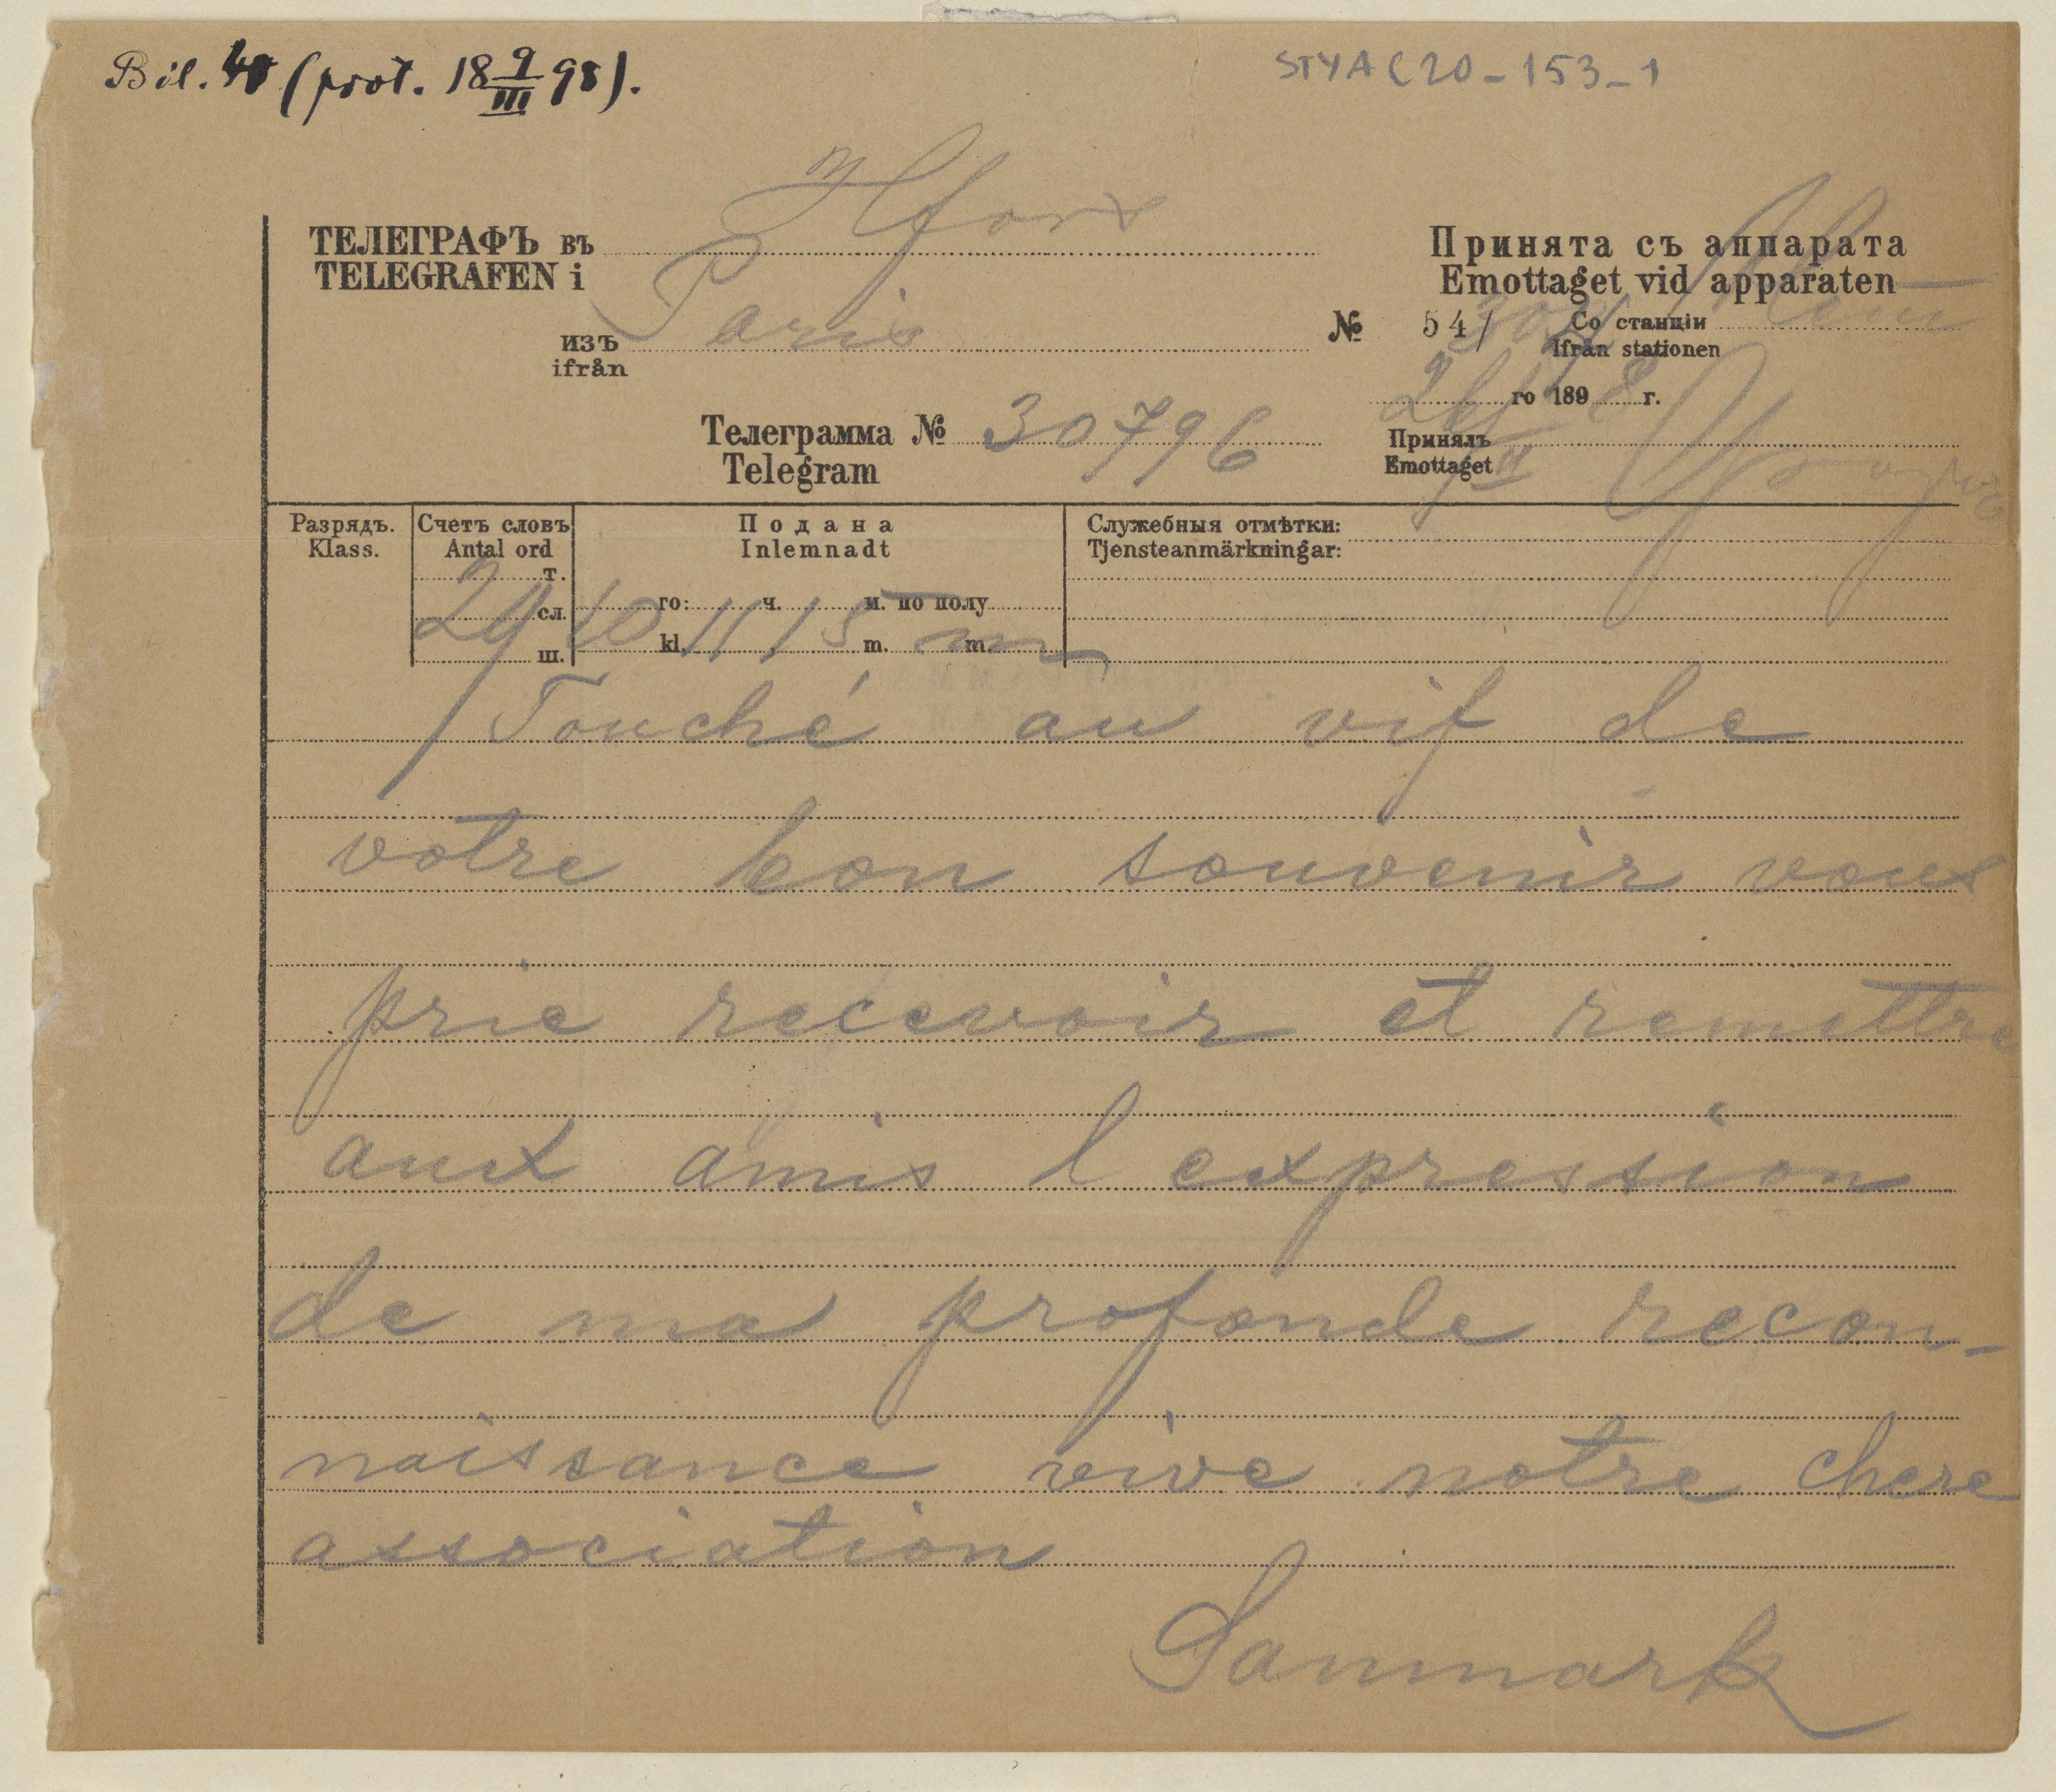 Bil. 40 (prot. 18 9/III 98).
STYA C20-153-1
ТЕЛЕГРАФЪ въ Hfors
TELEGRAFEN i
изъ Paris
ifrån
Принята съ аппарата
Emottaget vid apparaten
№ 541 Со станціи
Ifrån stationen
го 1898 г.
Телеграмма № 30796
Telegram
Принялъ
Emottaget
Разрядъ. Счетъ словъ Подана Служебныя отмѣтки:
Klass. Antal ord Inlemnadt Tjensteanmärkningar:
т.
29 сл. 10 го: 11 ч. 15 м. по полу
ш. kl. m. m
Touché au vif de
votre bon souvenir vous
prie recevoir et remettre
aux amis l expression
de ma profonde recon-
naissance vive notre chere
association
Sanmark